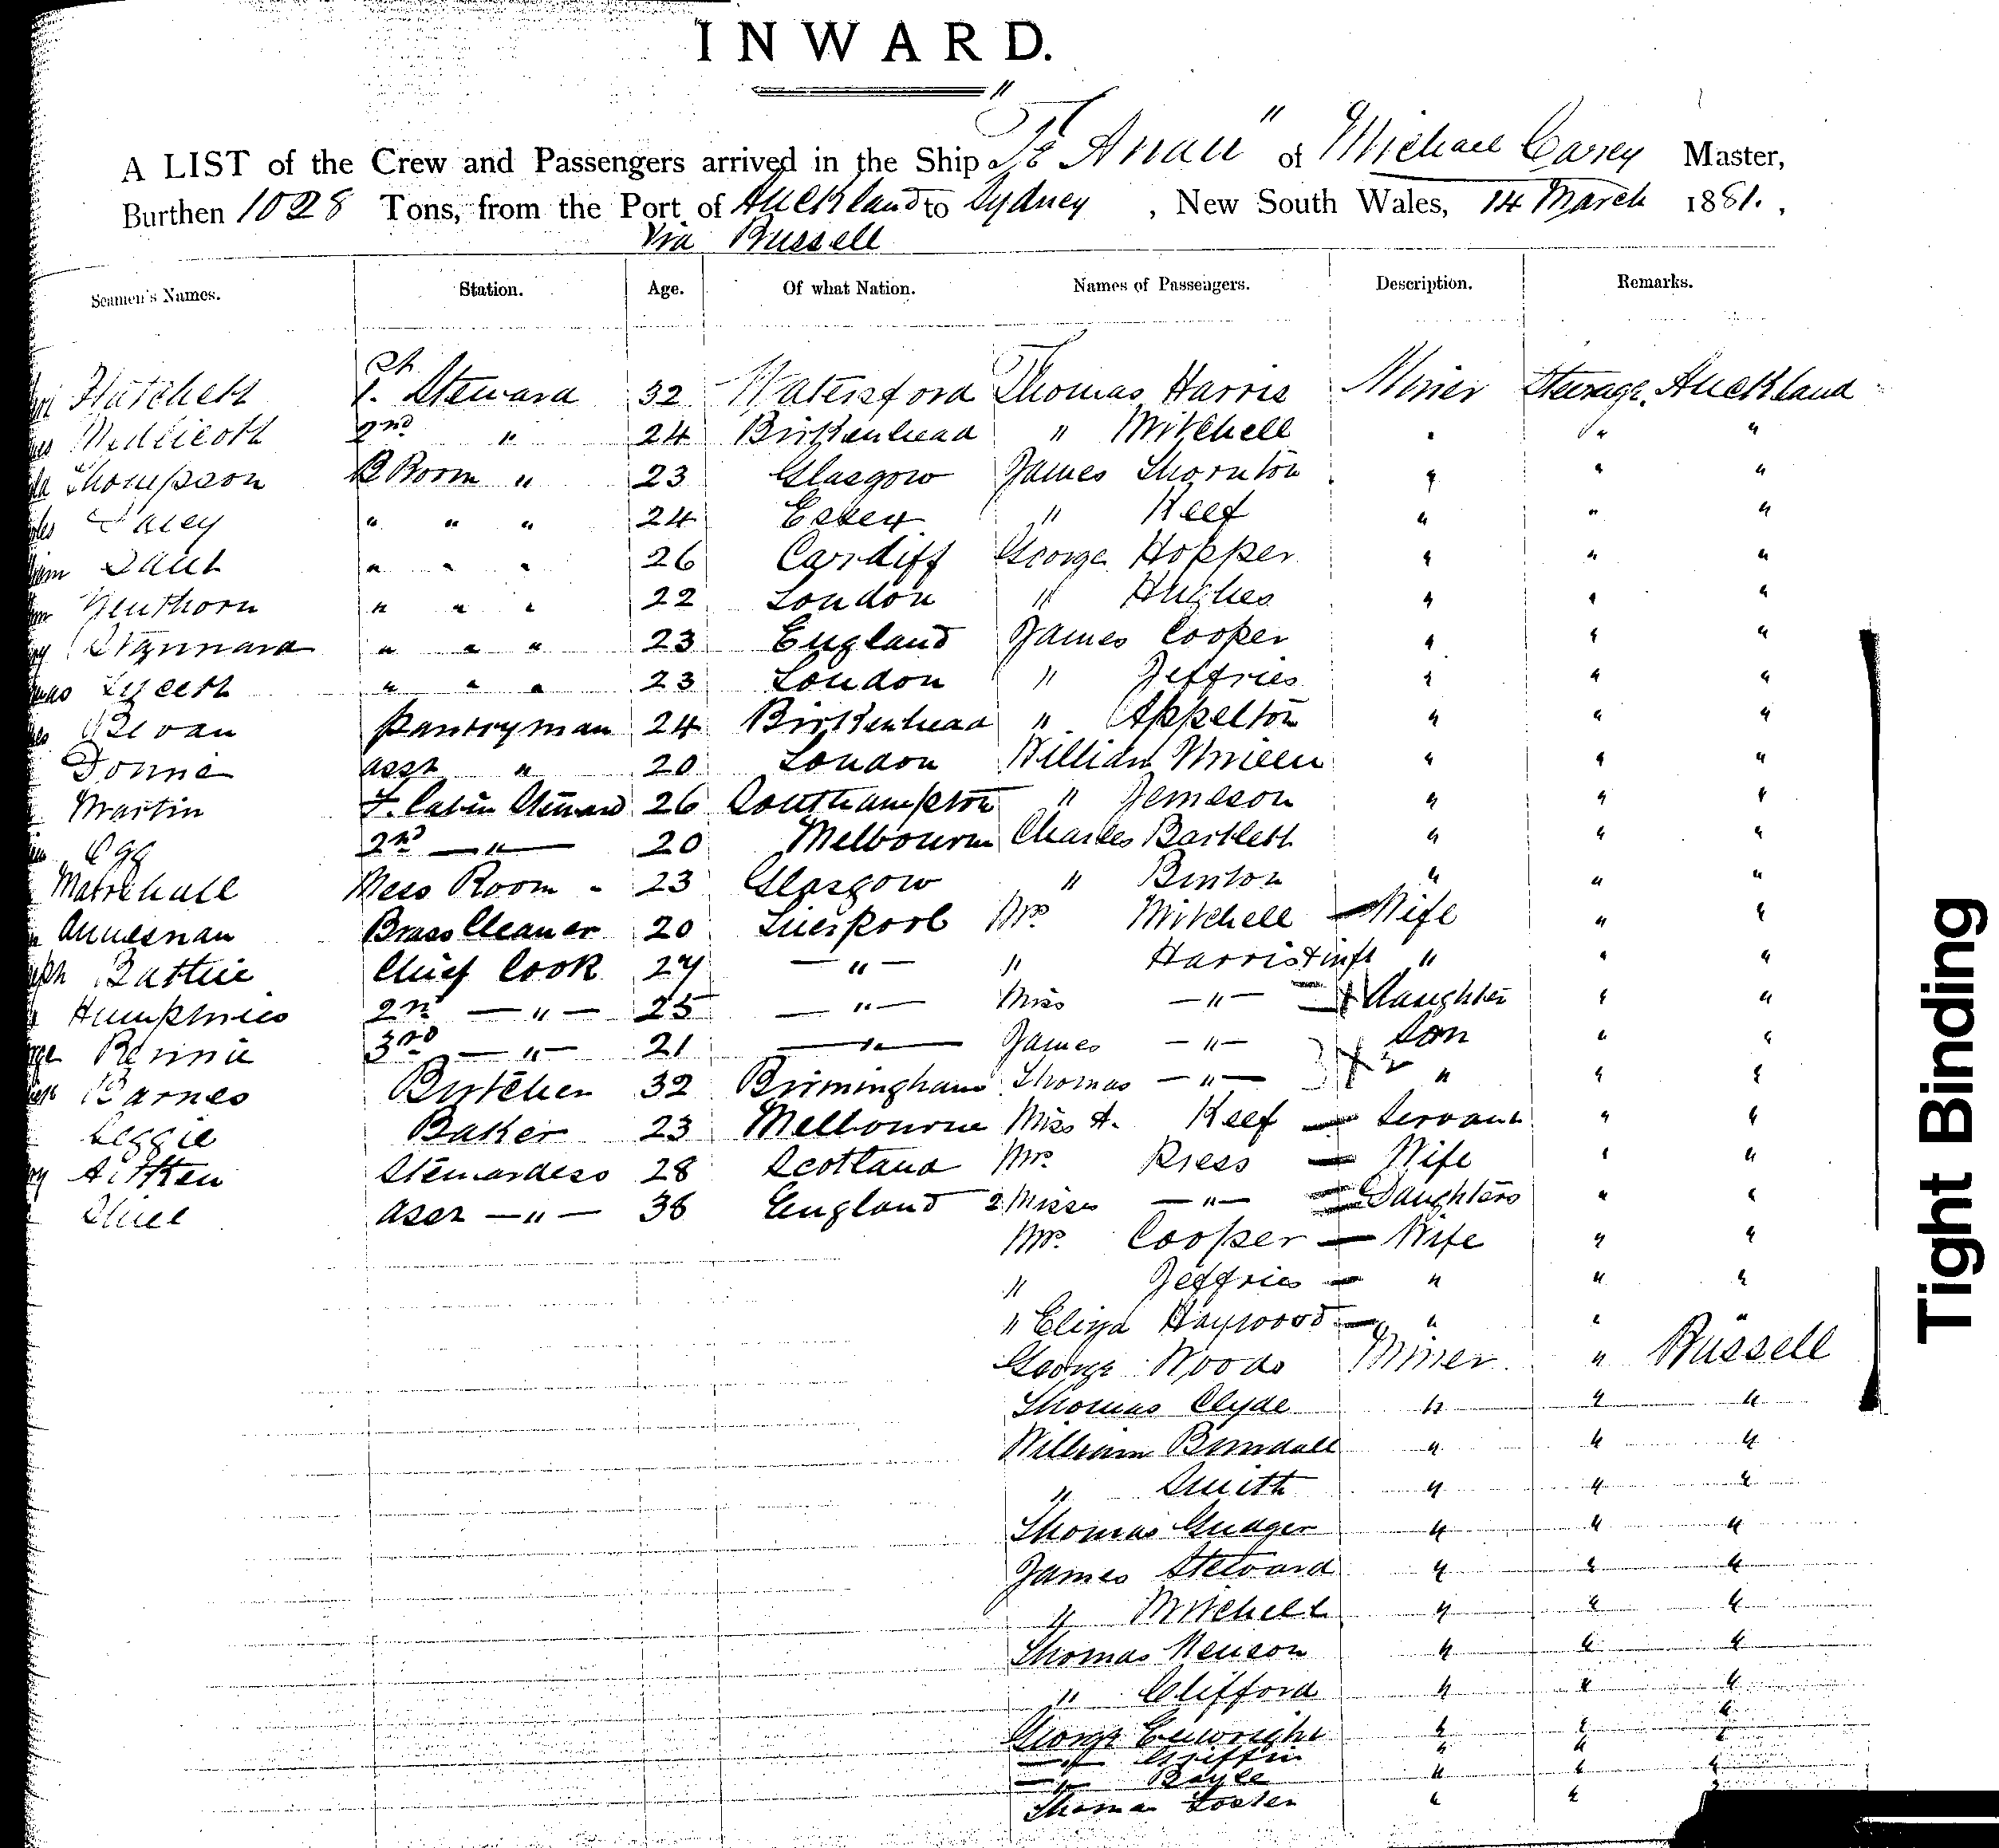 INWARD.
A LIST of the Crew and Passengers arrived in the Ship "Te Anau" of Michael Carey Master,
Burthen 1028 Tons, from the Port of Auckland to Sydney, New South Wales, 14 March 1881.,
Via Russell
Seamen's Names. Station. Age. Of what Nation. Names of Passengers. Description. Remarks.
Hatchett Ch. Steward 32 Waterford Thomas Harris Miner Steerage Auckland
Medlicott 2nd " 24 Birkenhead " Mitchell " " "
Thompson B Room " 23 Glasgow James Thornton " " "
" " " 24 Essex " Keef " " "
" " " 26 Cardiff George Hopper " " "
" " " 22 London " Hughes " " "
Stannard " " " 23 England James Cooper " " "
" " " 23 London " Jeffries " " "
Bevan Pantryman 24 Birkenhead " Appelton " " "
Donne asst " 20 London William " " "
Martin F. Cabin Steward 26 Southampton " Jemeson " " "
Ogg 2nd —"— 20 Melbourne Charles Bartlett " " "
Marshall Mess Room " 23 Glasgow " Binton " " "
Brass Cleaner 20 Liverpool Mrs Mitchell — Wife " "
Chief Cook 27 —"— " Harris & inft " " "
Humphries 2nd —"— 25 —"— Miss —"— Daughter " "
Rennie 3rd —"— 21 —"— James —"— Son " "
Barnes Butcher 32 Birmingham Thomas —"— " " "
Leggie Baker 23 Melbourne Miss A. Keef — Servant " "
Aitken Stewardess 28 Scotland Mrs Press — Wife " "
Asst —"— 36 England 2 Misses —"— Daughters " "
Mrs. Cooper — Wife " "
" Jeffries — " " "
" Eliza Haywood — " " "
George Woods Miner " Russell
Thomas Clyde " " "
William " " "
" Smith " " "
Thomas Gudger " " "
James Steward " " "
" Mitchell " " "
Thomas " " "
" Clifford " " "
George Enwright " " "
—"— Griffin " " "
—"— Boyle " " "
Thomas Foster " " "
Tight Binding